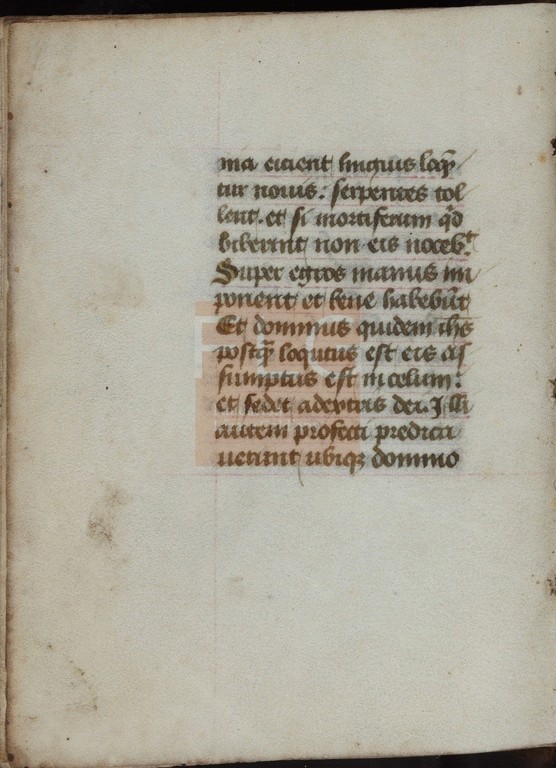 nia eicient linguis loq̄
tur nouis: serpentes tol
lent. et si mortiferum qd̄
biberint non eis noceb͛t
Super egros manus im
ponent et bene habebūt
Et dominus quidem ihs
postq̄ loqutus est eis as
sumptus est in celum:
et sedet adextris dei. Illi
autem profecti predica
uerunt ubiqꝫ domino